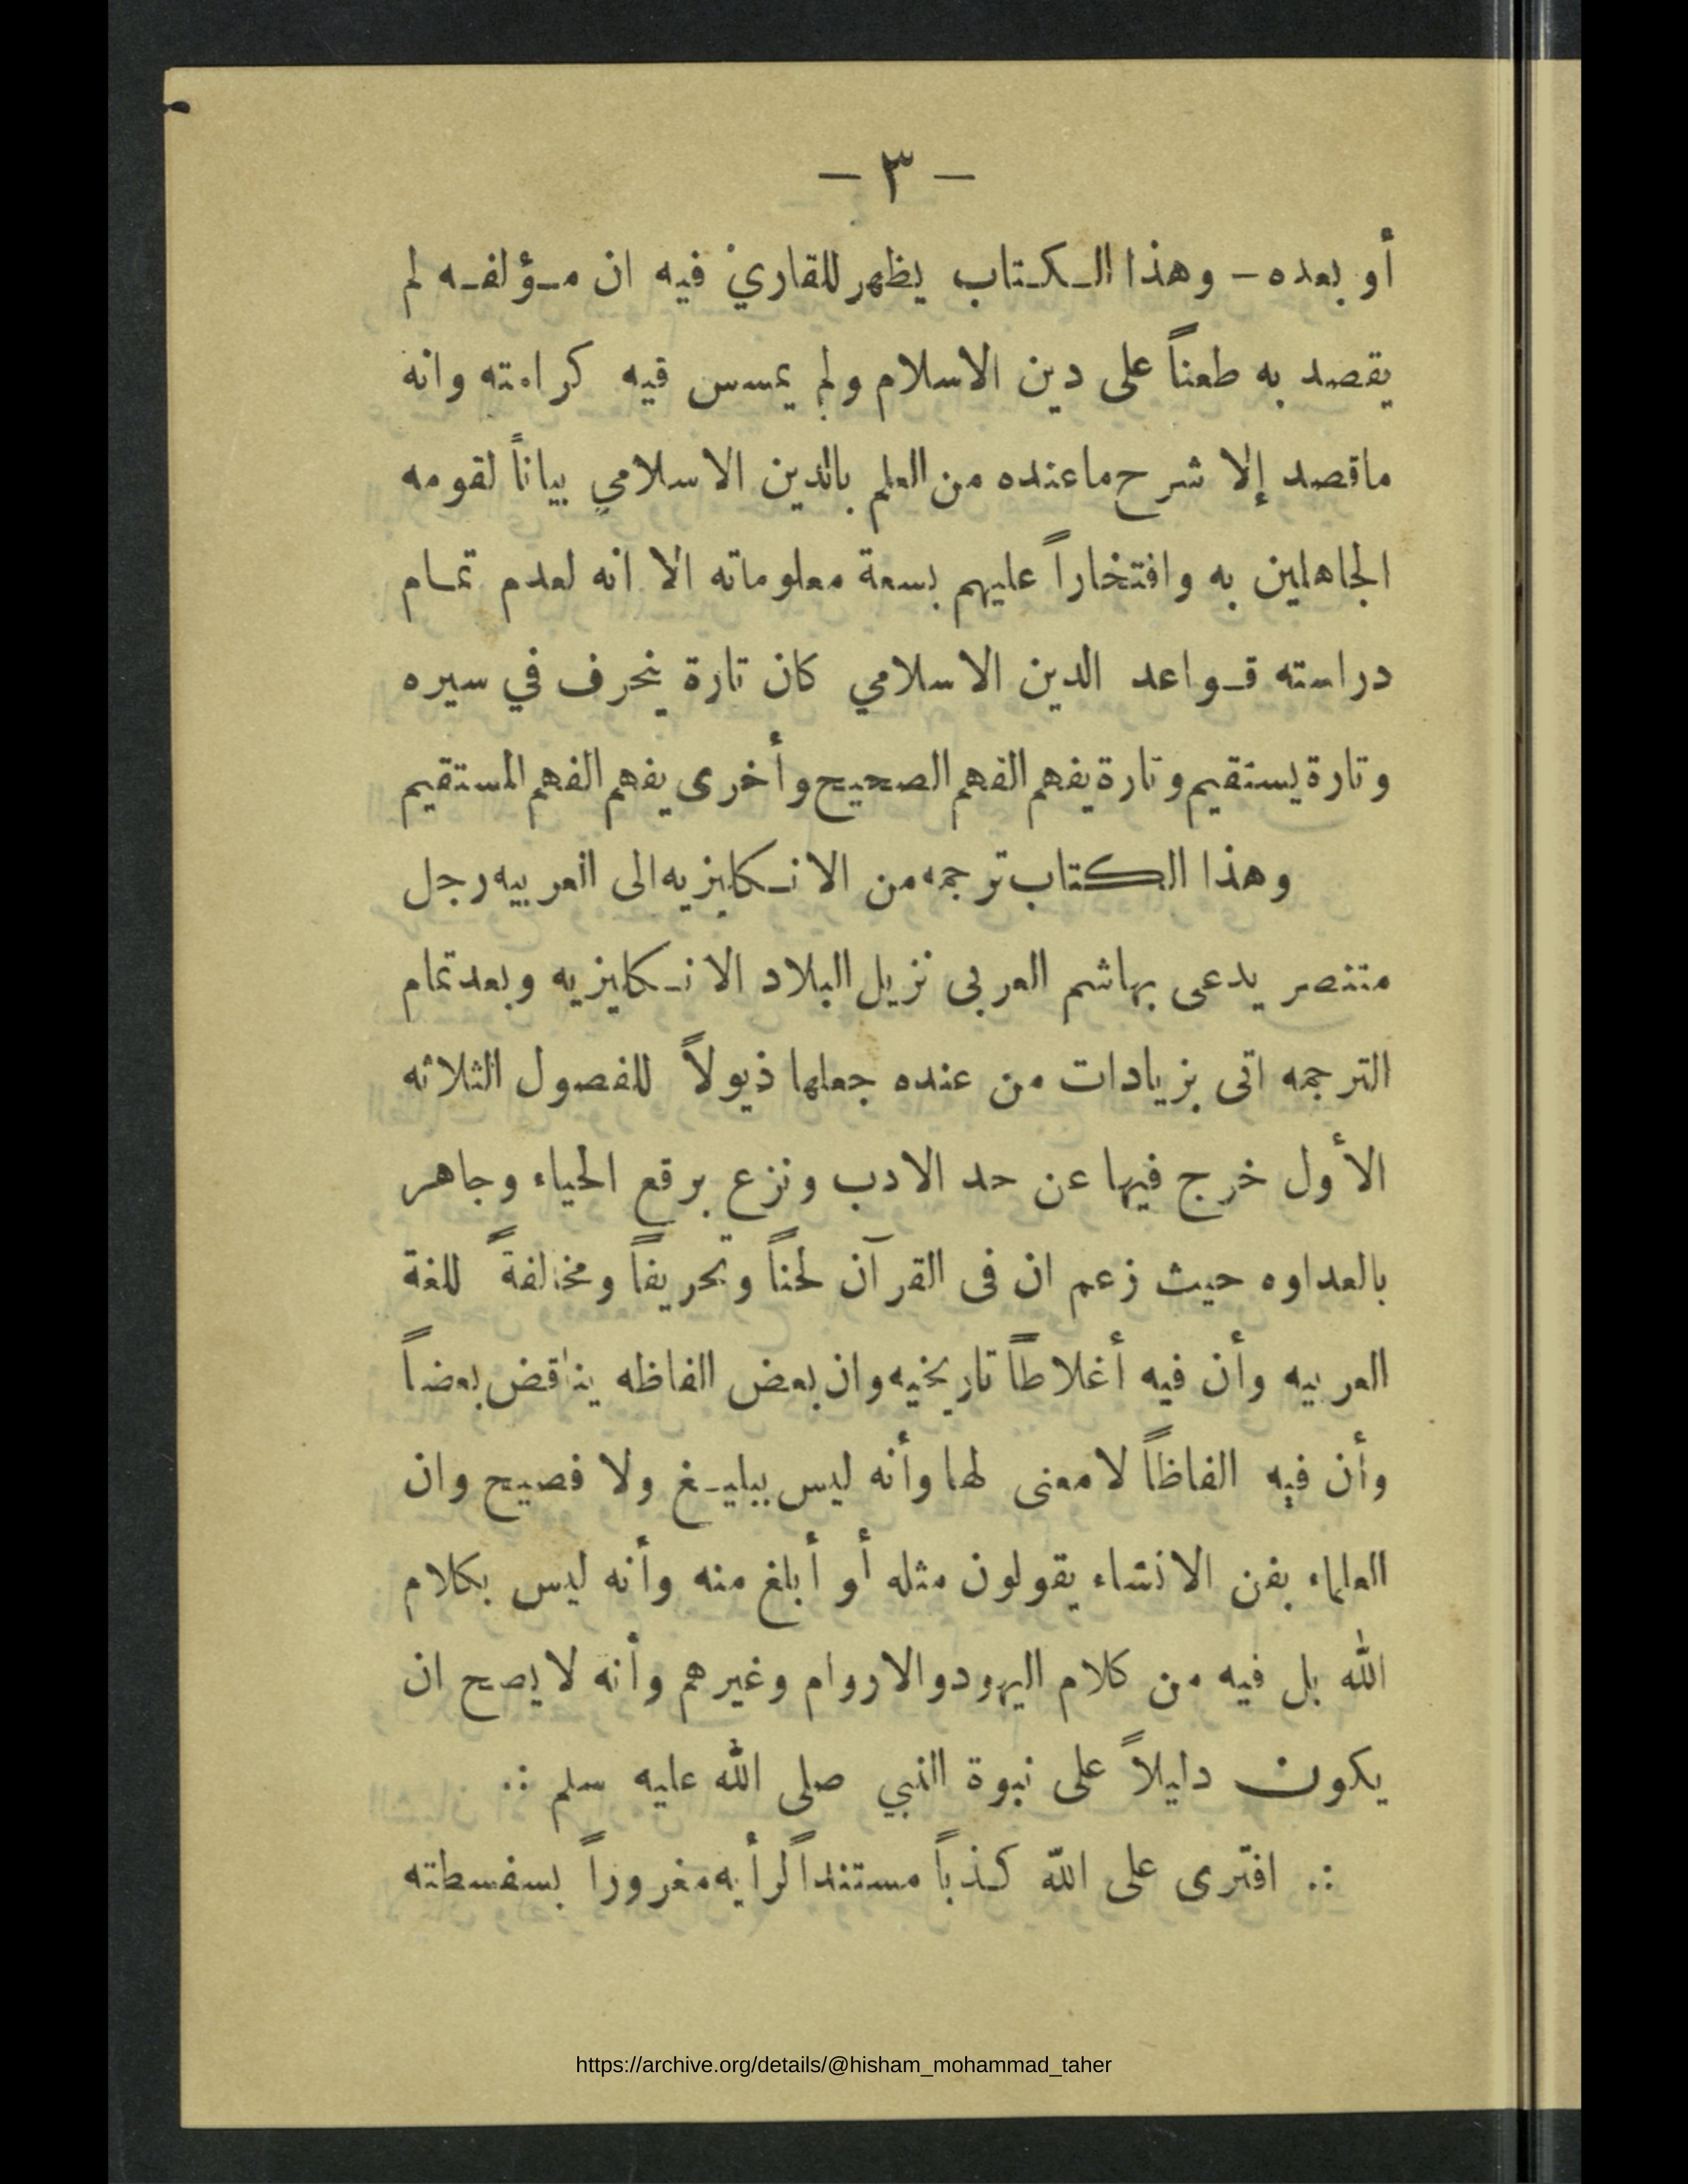 — ٣ —
أو بعده — وهذا الكتاب يظهر للقارئ فيه ان مؤلفه لم
يقصد به طعناً على دين الاسلام ولم يمسس فيه كرامته وانه
ماقصد إلا شرح ماعنده من العلم بالدين الاسلامي بياناً لقومه
الجاهلين به وافتخاراً عليهم بسعة معلوماته الا انه لعدم تمام
دراسته قواعد الدين الاسلامي كان تارة ينحرف في سيره
وتارة يستقيم وتارة يفهم الفهم الصحيح وأخرى يفهم الفهم المستقيم
وهذا الكتاب ترجمه من الانكليزيه الى العربيه رجل
متنصر يدعى بهاشم العربى نزيل البلاد الانكليزيه وبعد تمام
الترجمه اتى بزيادات من عنده جعلها ذيولاً للفصول الثلاثه
الأول خرج فيها عن حد الادب ونزع برقع الحياء وجاهر
بالعداوه حيث زعم ان فى القرآن لحناً وتحريفاً ومخالفةً للغة
العربيه وأن فيه أغلاطاً تاريخيه وان بعض الفاظه يناقض بعضاً
وأن فيه الفاظاً لامعنى لها وأنه ليس ببليغ ولا فصيح وان
العلماء بفن الانشاء يقولون مثله أو أبلغ منه وأنه ليس بكلام
الله بل فيه من كلام اليهود والاروام وغيرهم وأنه لايصح ان
يكون دليلاً على نبوة النبي صلى الله عليه سلم ∴
∴ افترى على الله كذباً مستنداً لرأيه مغروراً بسفسطته
https://archive.org/details/@hisham_mohammad_taher